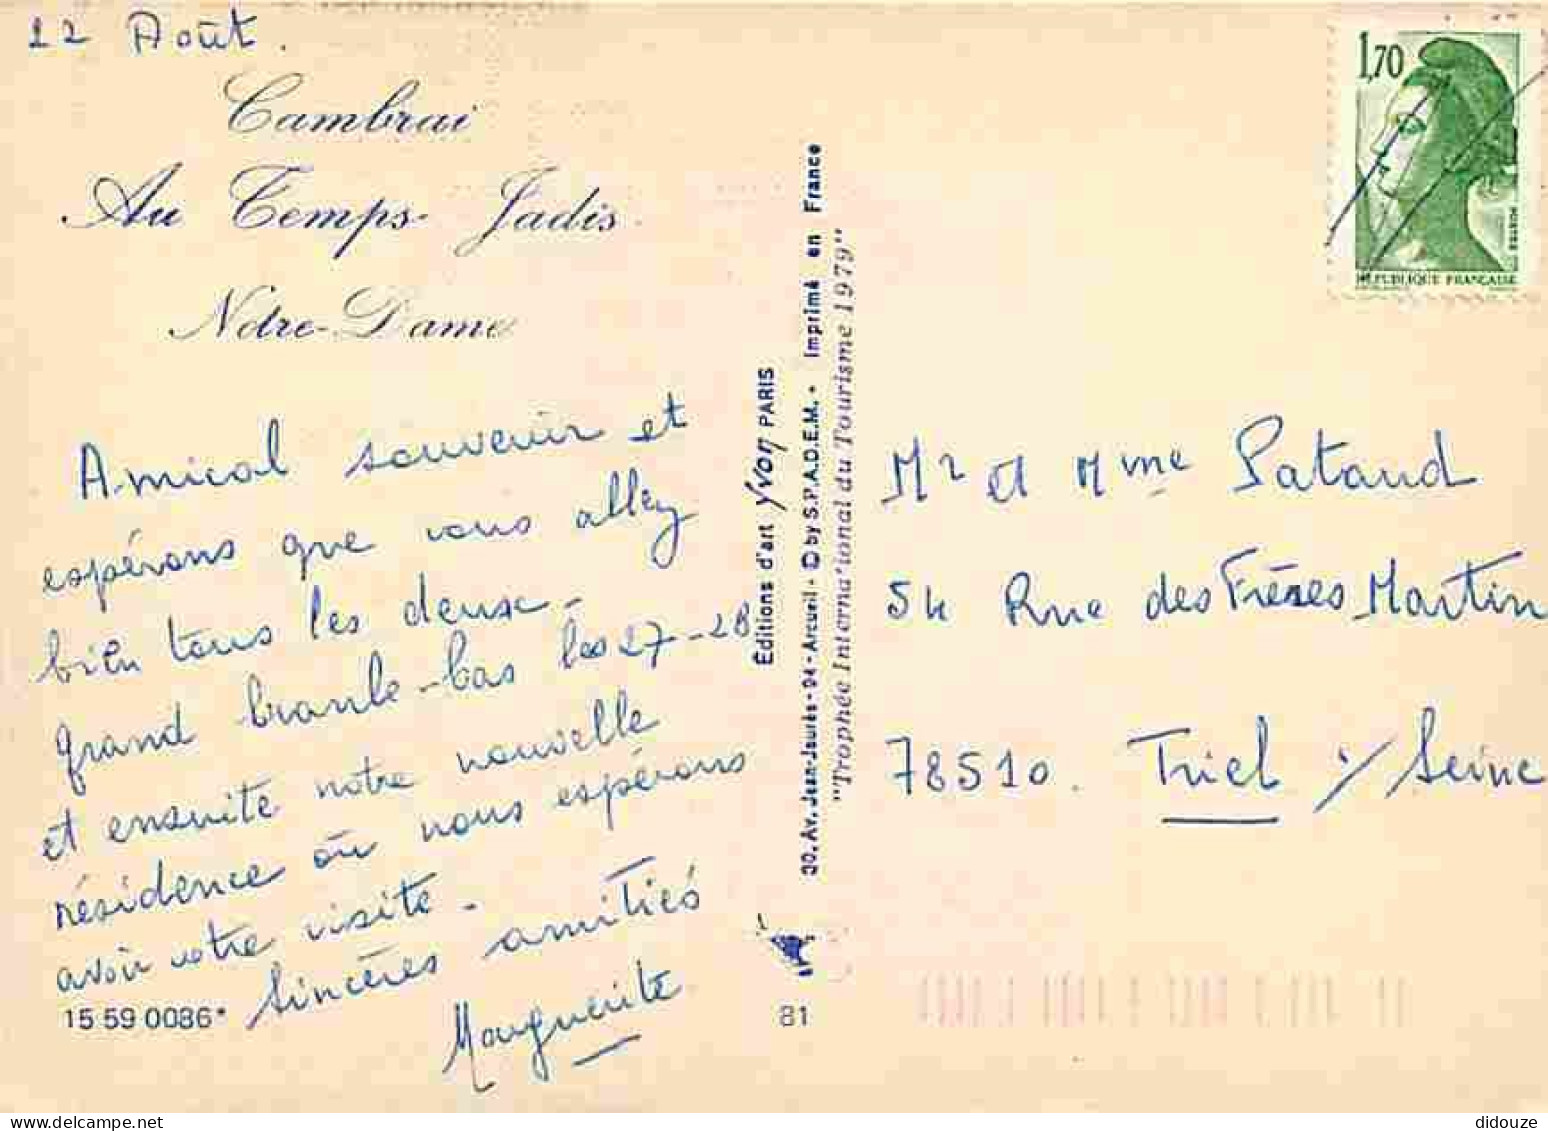 12 Août.
Cambrai
Au Temps Jadis
Notre-Dame
Amical souvenir et
espérons que vous allez
bien tous les deux -
grand branle-bas les 27-28
et ensuite notre nouvelle
résidence où nous espérons
avoir votre visite -
Sincères amitiés
Marguerite
15 59 0086*
81
Editions d'art Yvon PARIS
30, Av. Jean-Jaurès - 94 - Arcueil - © by S.P.A.D.E.M. - Imprimé en France
"Trophée International du Tourisme 1979"
1,70
RÉPUBLIQUE FRANÇAISE
Mr et Mme Pataud
54 Rue des Frères Martin
78510. Triel s/ Seine
didouze @ Delcampe.net